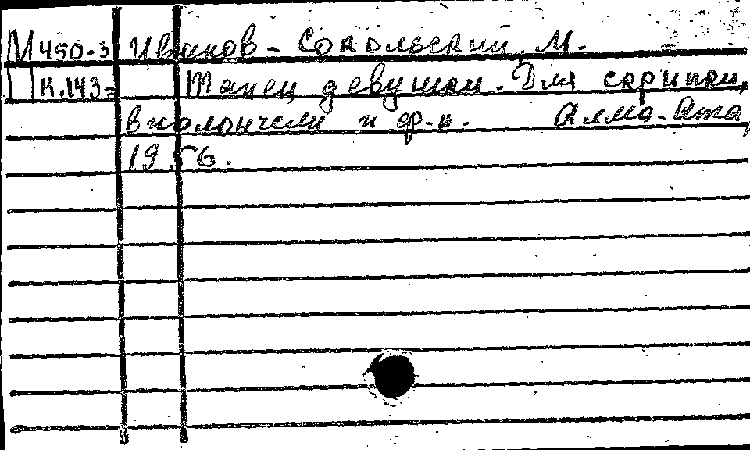 М 450-3 Иванов-Сокольский М.
К.143 Танец девушки. Для скрипки,
виолончели и ф-п. Алма-Ата,
1956.